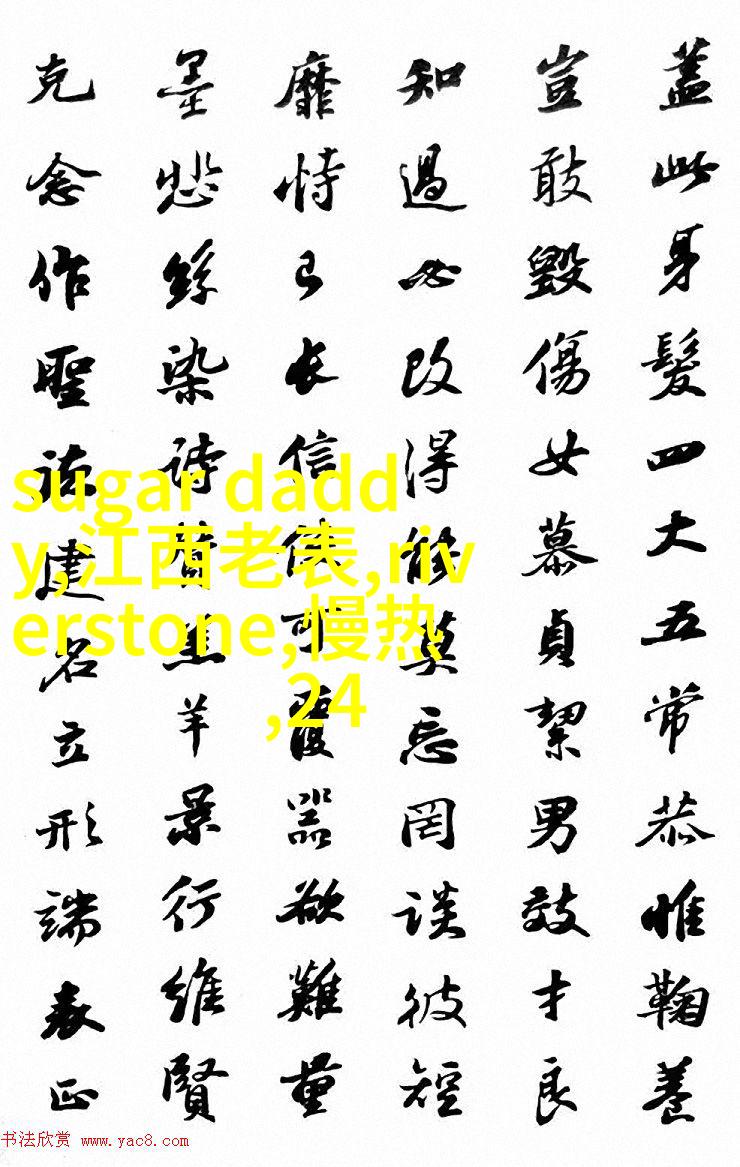 蓋此身髮四大五常恭惟鞠養
豈敢毀傷女慕貞絜男效才良
知過必改得能莫忘罔談彼短
靡恃己長信使可覆器欲難量
墨悲絲染詩羔羊景行維賢
克念作聖建名立形端表正
sugar dadd
y,江西老表,riv
erstone,慢热
,24
书法欣赏 www.yac8.com